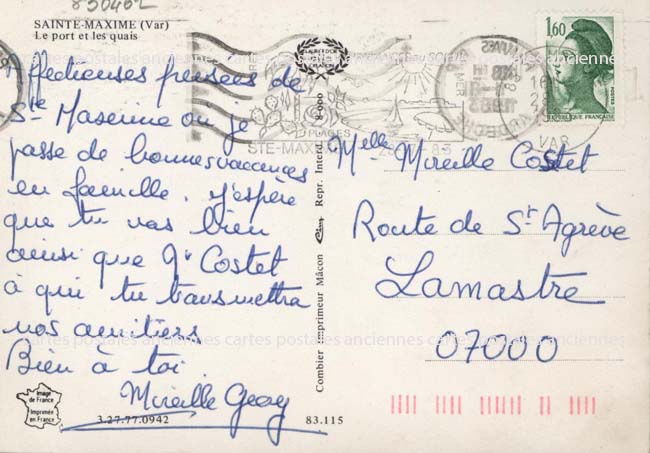 830402
SAINTE-MAXIME (Var)
Le port et les quais
Affectueuses pensées de
Ste Maxime où je
passe de bonnes vacances
en famille. J'espère
que tu vas bien
ainsi que Mr Costet
à qui tu transmettra
nos amitiers
Bien à toi
Mireille Geay
Image
de France
Imprimée
en France
3.27.77.0942
83.115
Combier Imprimeur Mâcon
Cim
Repr. Interd.
8.000
PLAGES
STE-MAXIME
1,60
POSTES
REPUBLIQUE FRANÇAISE
1983
ARDECHE
VAR
Melle Mireille Costet
Route de St Agrève
Lamastre
07000
cartes postales anciennes cartes postales anciennes